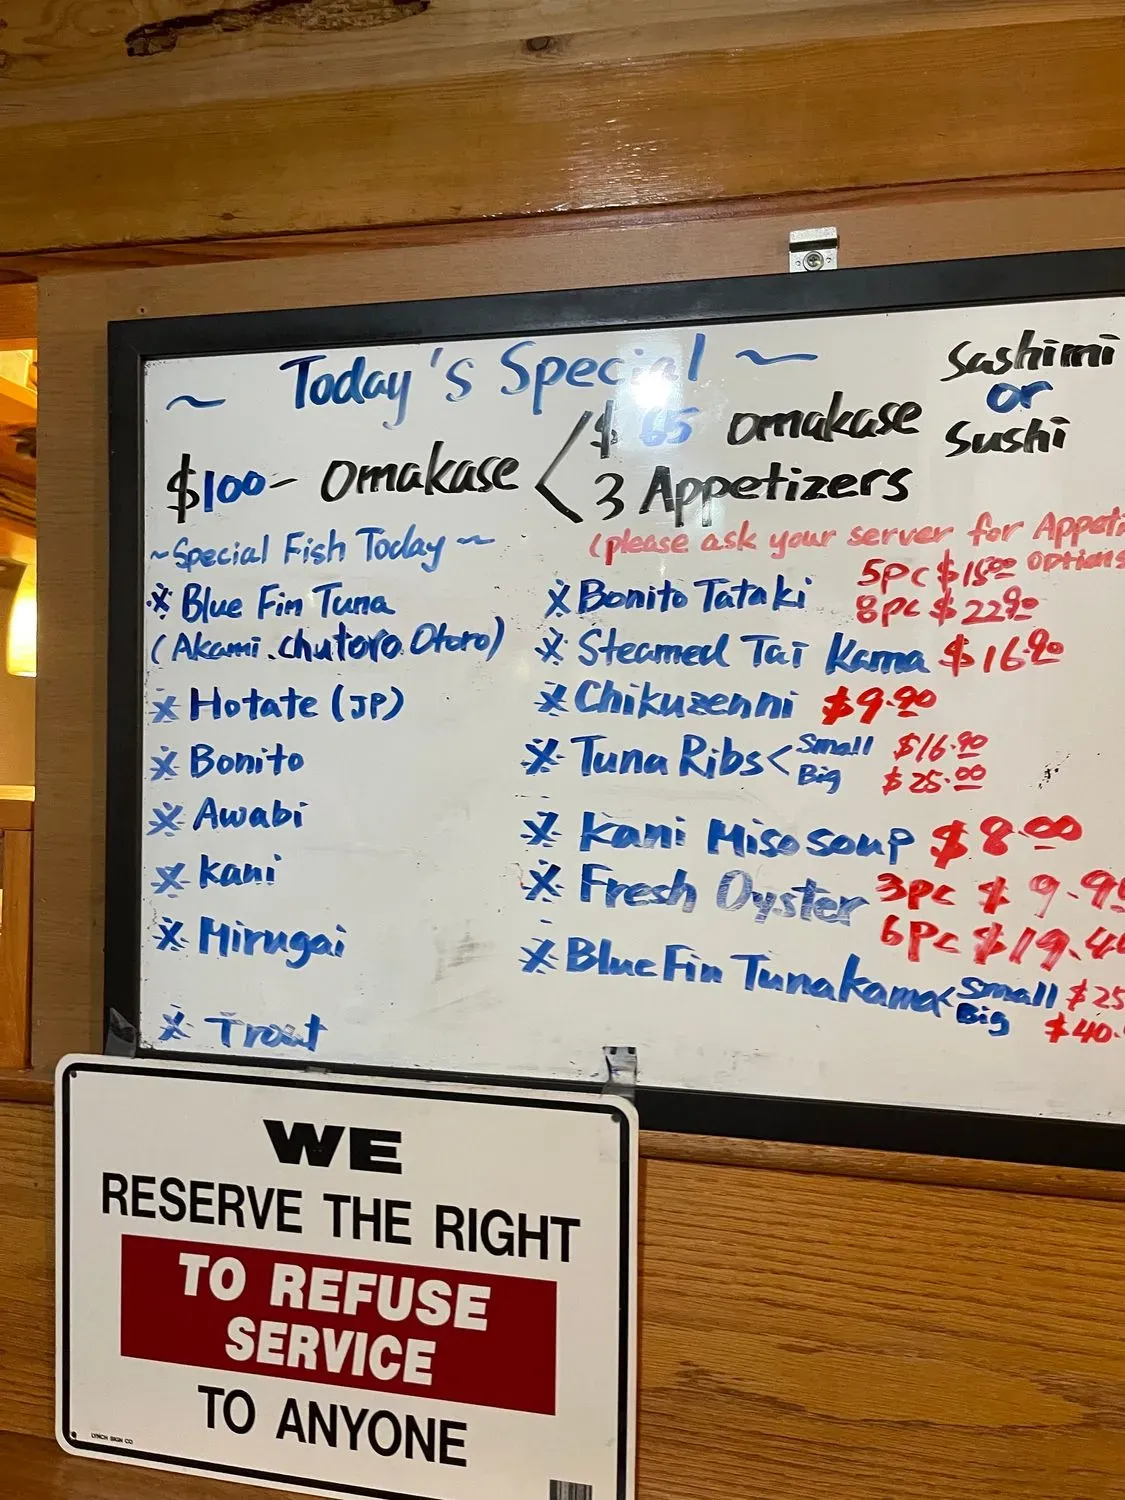 ~ Today's Special ~
$100- Omakase < $65 Omakase
3 Appetizers
Sashimi
or
Sushi
(please ask your server for Appeti
options
~Special Fish Today~
※ Blue Fin Tuna
(Akami. chutoro Otoro)
※ Hotate (JP)
※ Bonito
※ Awabi
※ Kani
※ Mirugai
※ Trout
※ Bonito Tataki 5pc $15.00
8pc $22.90
※ Steamed Tai Kama $16.90
※ Chikuzenni $9.90
※ Tuna Ribs < Small $16.90
Big $25.00
※ Kani Miso soup $8.00
※ Fresh Oyster 3pc $9.9
6pc $19.
※ Blue Fin Tuna Kama < Small $25
Big $40.
WE
RESERVE THE RIGHT
TO REFUSE
SERVICE
TO ANYONE
LYNCH SIGN CO